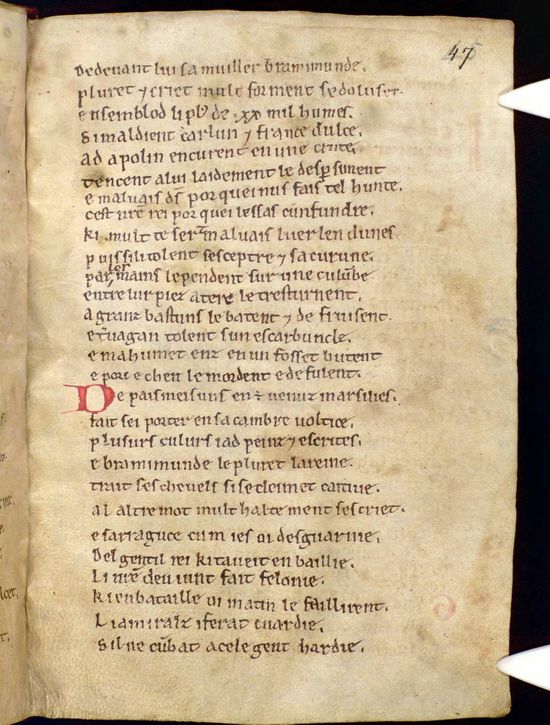 47
Dedevant lui sa muiller bramimunde.
pluret ⁊ criet mult forment se doluset.
ensemblod li plus de .xx. mil humes.
Si maldient carlun ⁊ france dulce.
Ad apolin encurent en une crute.
tencent a lui laidement le despersunent
e malvais ds por quei nus fais tel hunte.
cest nre rei por quei lessas cunfundre.
Ki mult te sert malvais luer len dunes
puis si li tolent se sceptre ⁊ sa curune.
par les mains le pendent sur une culube
entre lur piez a tere le tresturnent.
a granz bastuns le batent ⁊ de fruisent.
e tvagan tolent sun escarbuncle.
e mahumet enz en un fosset butent
e porc e chen le mordent e de fulent.
De paismeisuns en est venuz marsilies.
fait sei porter en sa cambre voltice.
plusurs culurs i ad peinz ⁊ escrites.
e bramimunde le pluret la reine.
trait ses chevels si se cleimet caitive.
al altre mot mult haltement sescriet.
e sarraguce cum ies oi desguarnie.
Del gentil rei ki taveit en baillie.
Li nre deu unt fait felonie.
Ki en bataille oi matin le faillirent.
Li amiralz i ferat cuardie.
Sil ne cubat a cele gent hardie.